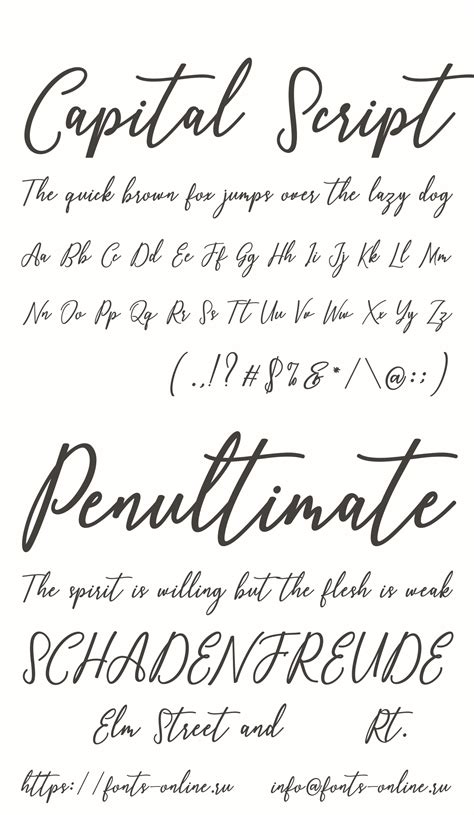 Capital Script
The quick brown fox jumps over the lazy dog
Aa Bb Cc Dd Ee Ff Gg Hh Ii Jj Kk Ll Mm
Nn Oo Pp Qq Rr Ss Tt Uu Vv Ww Xx Yy Zz
(.,!?#$%&*/\@:;)
Penultimate
The spirit is willing but the flesh is weak
SCHADENFREUDE
Elm Street and Rt.
https://fonts-online.ru info@fonts-online.ru